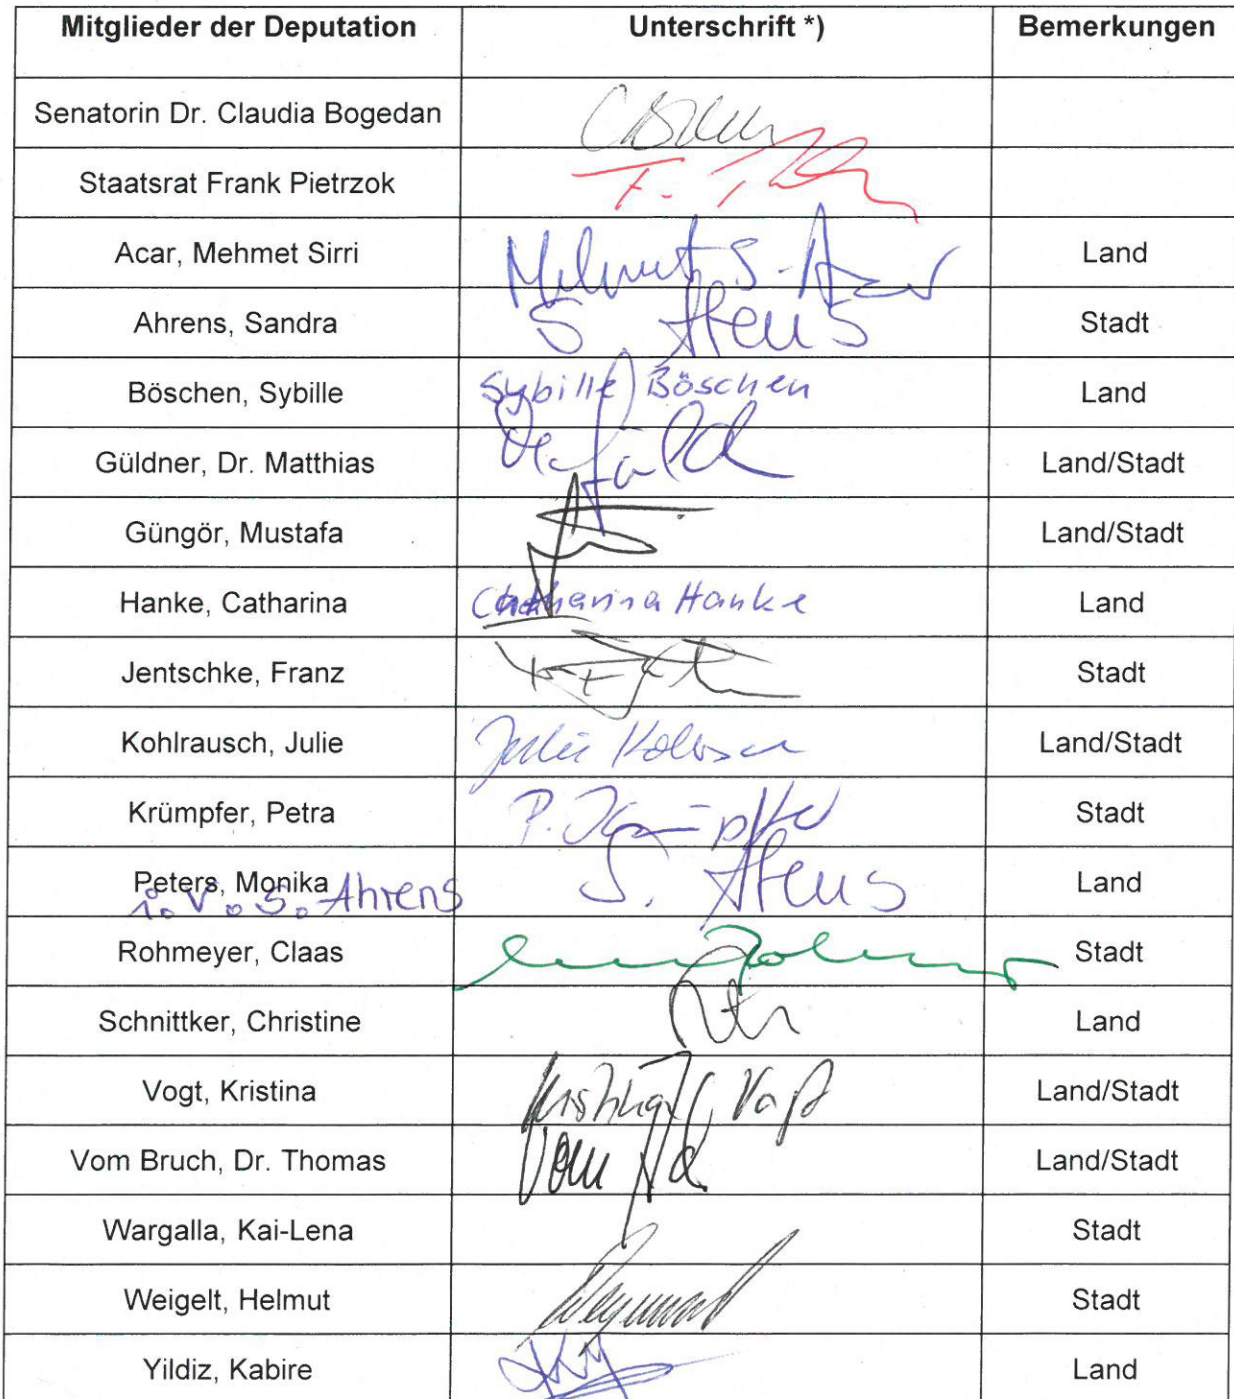 Mitglieder der Deputation Unterschrift *) Bemerkungen
Senatorin Dr. Claudia Bogedan
Staatsrat Frank Pietrzok
Acar, Mehmet Sirri Mehmet S. Acar Land
Ahrens, Sandra S Ahrens Stadt
Böschen, Sybille Sybille Böschen Land
Güldner, Dr. Matthias Land/Stadt
Güngör, Mustafa Land/Stadt
Hanke, Catharina Catharina Hanke Land
Jentschke, Franz Stadt
Kohlrausch, Julie Julie Land/Stadt
Krümpfer, Petra P. Krümpfer Stadt
Peters, Monika S. Ahrens Land
i. V. S. Ahrens
Rohmeyer, Claas Stadt
Schnittker, Christine Land
Vogt, Kristina Kristina Vogt Land/Stadt
Vom Bruch, Dr. Thomas Vom Land/Stadt
Wargalla, Kai-Lena Stadt
Weigelt, Helmut Stadt
Yildiz, Kabire Land